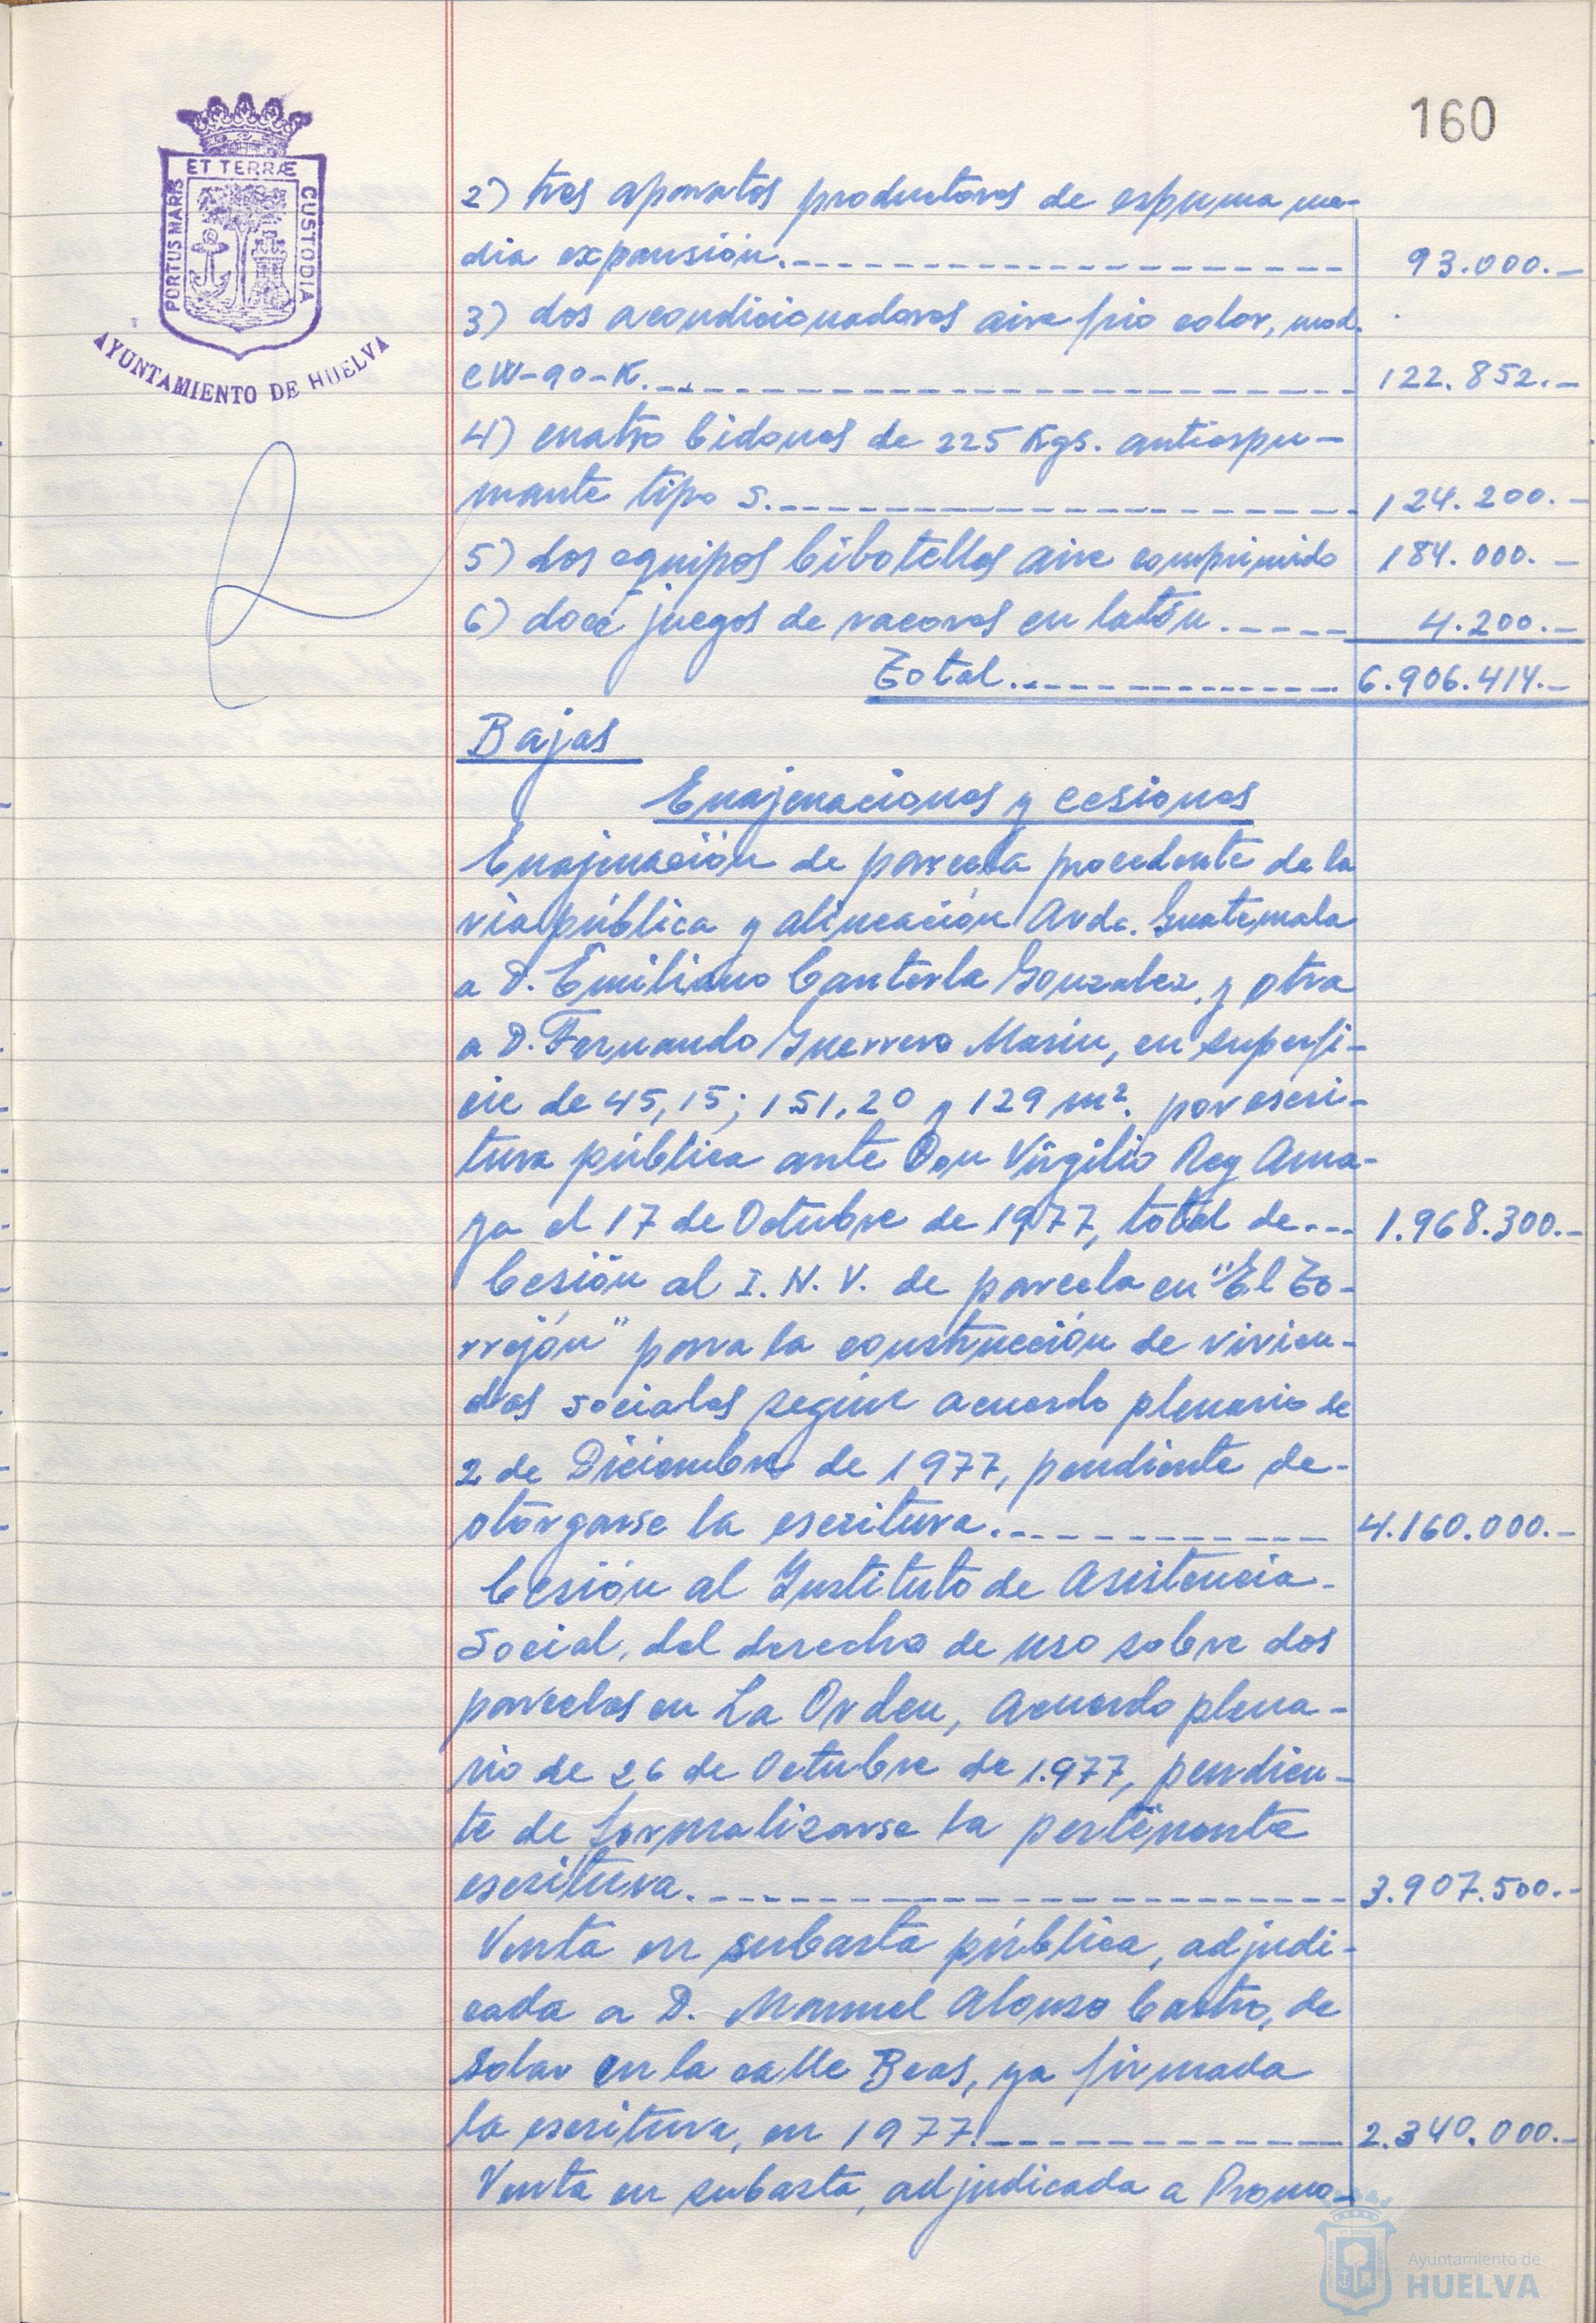 160
ET TERRÆ
PORTUS MARIS
CUSTODIA
AYUNTAMIENTO DE HUELVA
2) tres aparatos productores de espuma me-
dia expansión.------------------ 93.000.-
3) dos acondicionadores aire frio calor, mod.
CW-90-K.------------------ 122.852.-
4) cuatro bidones de 225 Kgs. antiespu-
mante tipo S.------------------ 124.200.-
5) dos equipos bibotellas aire comprimido 184.000.-
6) doce juegos de racores en latón.----- 4.200.-
Total.------------- 6.906.414.-
Bajas
Enajenaciones y cesiones
Enajenación de parcela procedente de la
via pública y alineación Avda. Guatemala
a D. Emiliano Canterla Gonzalez, y otra
a D. Fernando Guerrero Marin, en superfi-
cie de 45,15; 151,20 y 129 m². por escri-
tura pública ante Don Virgilio Rey Ama-
ya el 17 de Octubre de 1977, total de.-- 1.968.300.-
Cesión al I.N.V. de parcela en "El To-
rrejón" para la construcción de vivien-
das sociales según acuerdo plenario de
2 de Diciembre de 1977, pendiente de-
otorgarse la escritura.----------- 4.160.000.-
Cesión al Instituto de Asistencia-
Social, del derecho de uso sobre dos
parcelas en La Orden, Acuerdo plena-
rio de 26 de Octubre de 1.977, pendien-
te de formalizarse la pertinente
escritura.------------------ 3.907.500.-
Venta en subasta pública, adjudi-
cada a D. Manuel Alonso Castro, de
solar en la calle Beas, ya firmada
la escritura, en 1977.------------ 2.340.000.-
Venta en subasta, adjudicada a Promo-
Ayuntamiento de
HUELVA